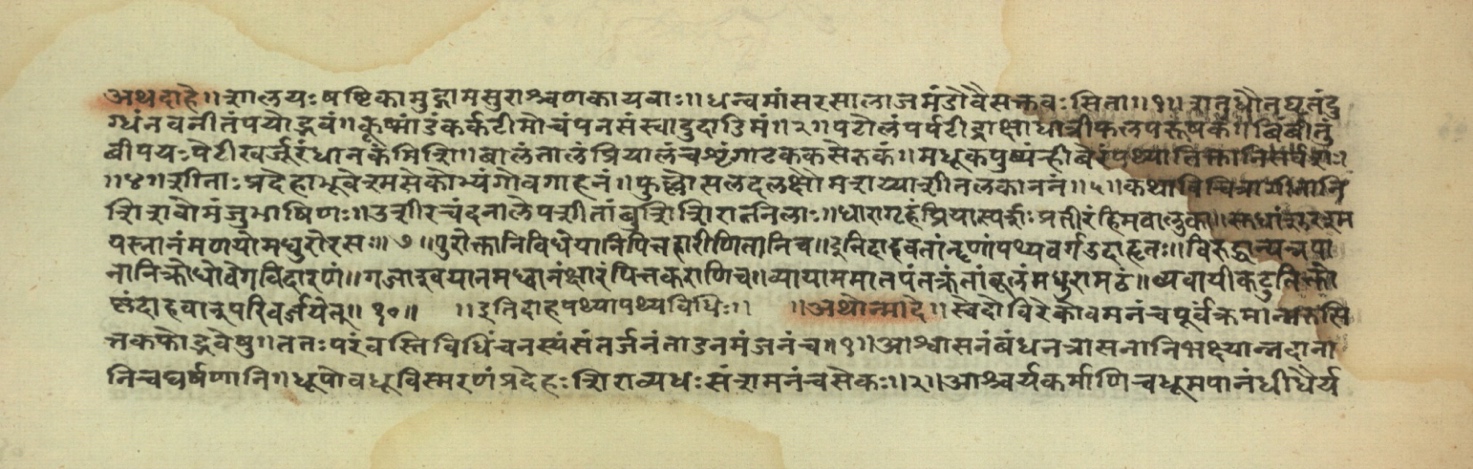 अथदाहे॥शालयःषष्टिकामुद्गामसुराश्चणकायवाः॥धन्वमांसरसालाजमंडोवैसक्तवःसिता॥१॥शतधौतघृतंदु
ग्धंनवनीतंपयोद्भवं॥कूष्मांडंकर्कटीमोचंपनसंस्वादुदाडिमं॥२॥पटोलंपर्पटीद्राक्षाधात्रीफलपरूषकं॥बिंबीतुं
बीपयःपेटीखर्जूरंधानकंमिशि॥बालंतालंप्रियालंचशृंगाटककसेरुकं॥मधूकपुष्पंन्हीबेरंपथ्यातिक्तानिसर्वशः
॥४॥शीताःप्रदेहाभूवेश्मसेकोभ्यंगोवगाहनं॥फुल्लोत्पलदलक्षौमशय्याशीतलकाननं॥५॥कथाविचित्रागीतानि
शिशवोमंजुभाषिणः॥उशीरचंदनालेपशीतांबुशिशिरानिलाः॥धारागृहंप्रियास्पर्शःप्रतीरंहिमवालुका॥सुधांशुरश्म
यस्नानंमणयोमधुरोरसः॥७॥पुरोक्तानिविधेयानिपित्तहारीणितानिच॥इतिदाहवतांनृणांपथ्यवर्गउदाहृतः॥विरुद्धान्यन्नपा
नानिक्रोधोवेगविदारणं॥गजाश्वयानमध्वानंक्षारंपित्तकराणिच॥व्यायाममातपंतक्रंतांबूलंमधुरामठं॥व्यवायीकटुतिक्तो
ष्णंदाहवान्परिवर्जयेत्॥१०॥ ॥इतिदाहपथ्यापथ्यविधिः॥ ॥अथोन्मादे॥स्वेदोविरेकोवमनंचपूर्वंक्रमान्मरुत्पि
त्तकफोद्भवेषु॥ततःपरंवस्तिविधिंचनस्यंसंतर्जनंताडनमंजनंच॥१॥आश्वासनंबंधनत्रासनानिभक्ष्यान्नदाना
निचघर्षणानि॥धूपोवधूविस्मरणंप्रदेहःशिराव्यधःसंशमनंचसेकः॥२॥आश्चर्यकर्माणिचधूमपानंधीधैर्य